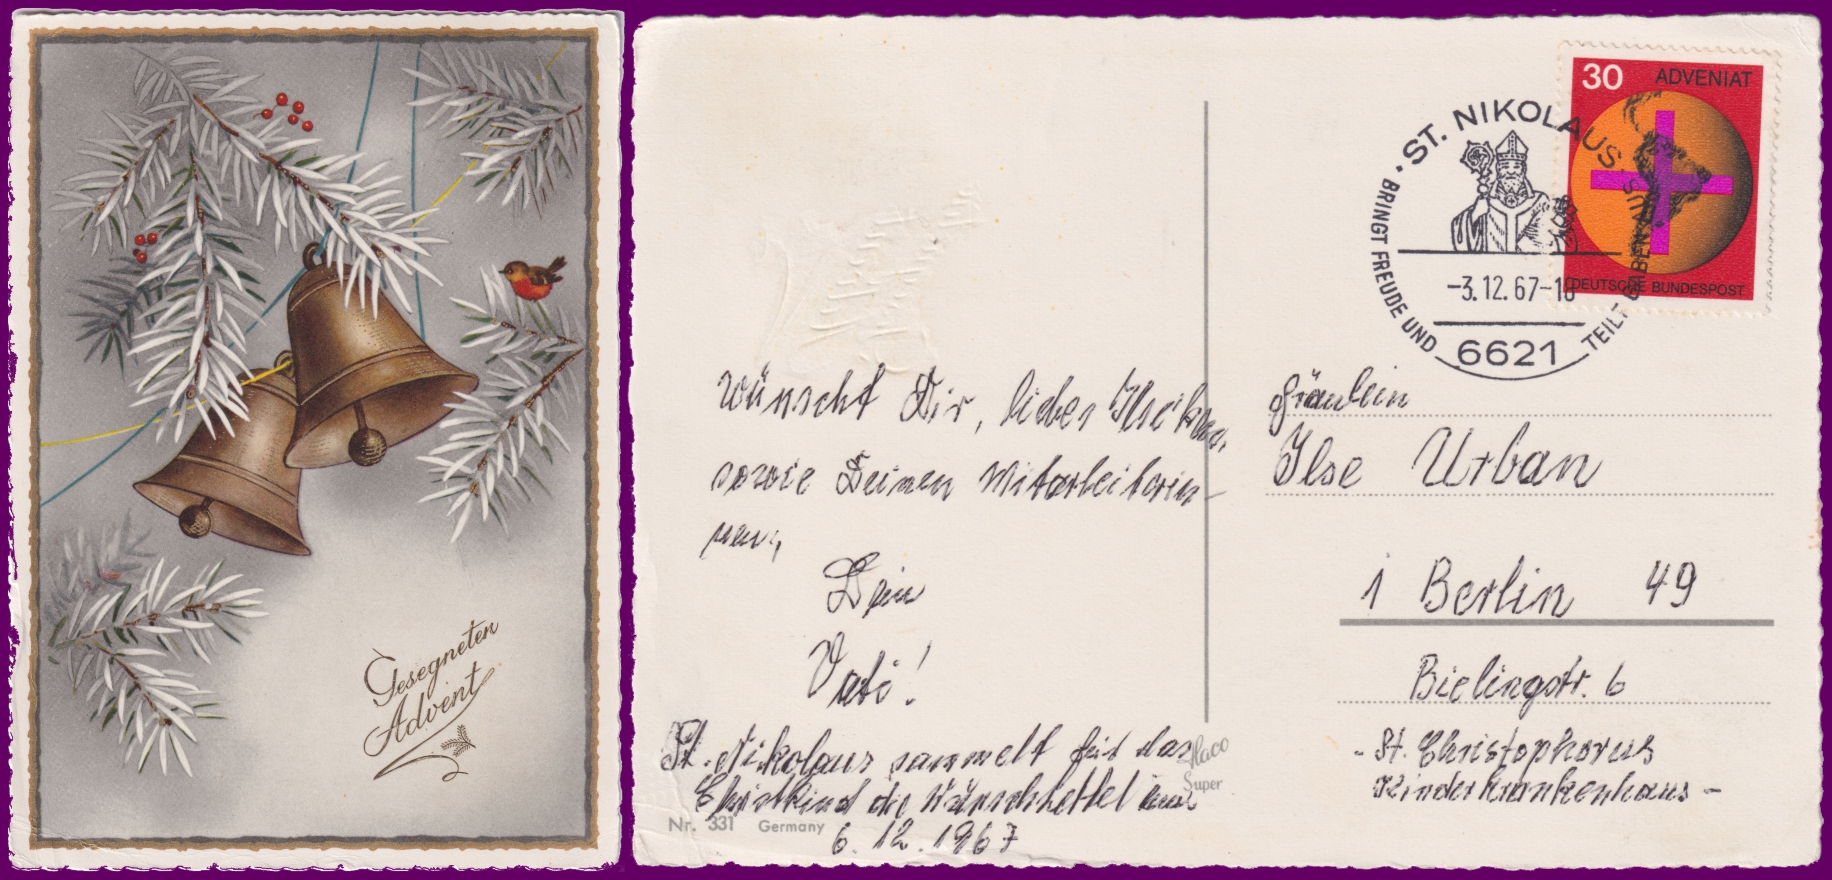 Gesegneten
Advent
30 ADVENIAT
DEUTSCHE BUNDESPOST
ST. NIKOLAUS
BRINGT FREUDE UND
TEILT GABEN
-3.12.67-18
6621
Wünscht Dir, liebes Ilsekind,
sowie Deinen Mitarbeiterin-
nen,
Dein
Vati!
St. Nikolaus sammelt für das
Christkind die Wunschzettel
6. 12. 1967
Haco
Super
Nr. 331 Germany
Fräulein
Ilse Urban
1 Berlin 49
Bielingstr. 6
- St. Christophorus
Kinderkrankenhaus -